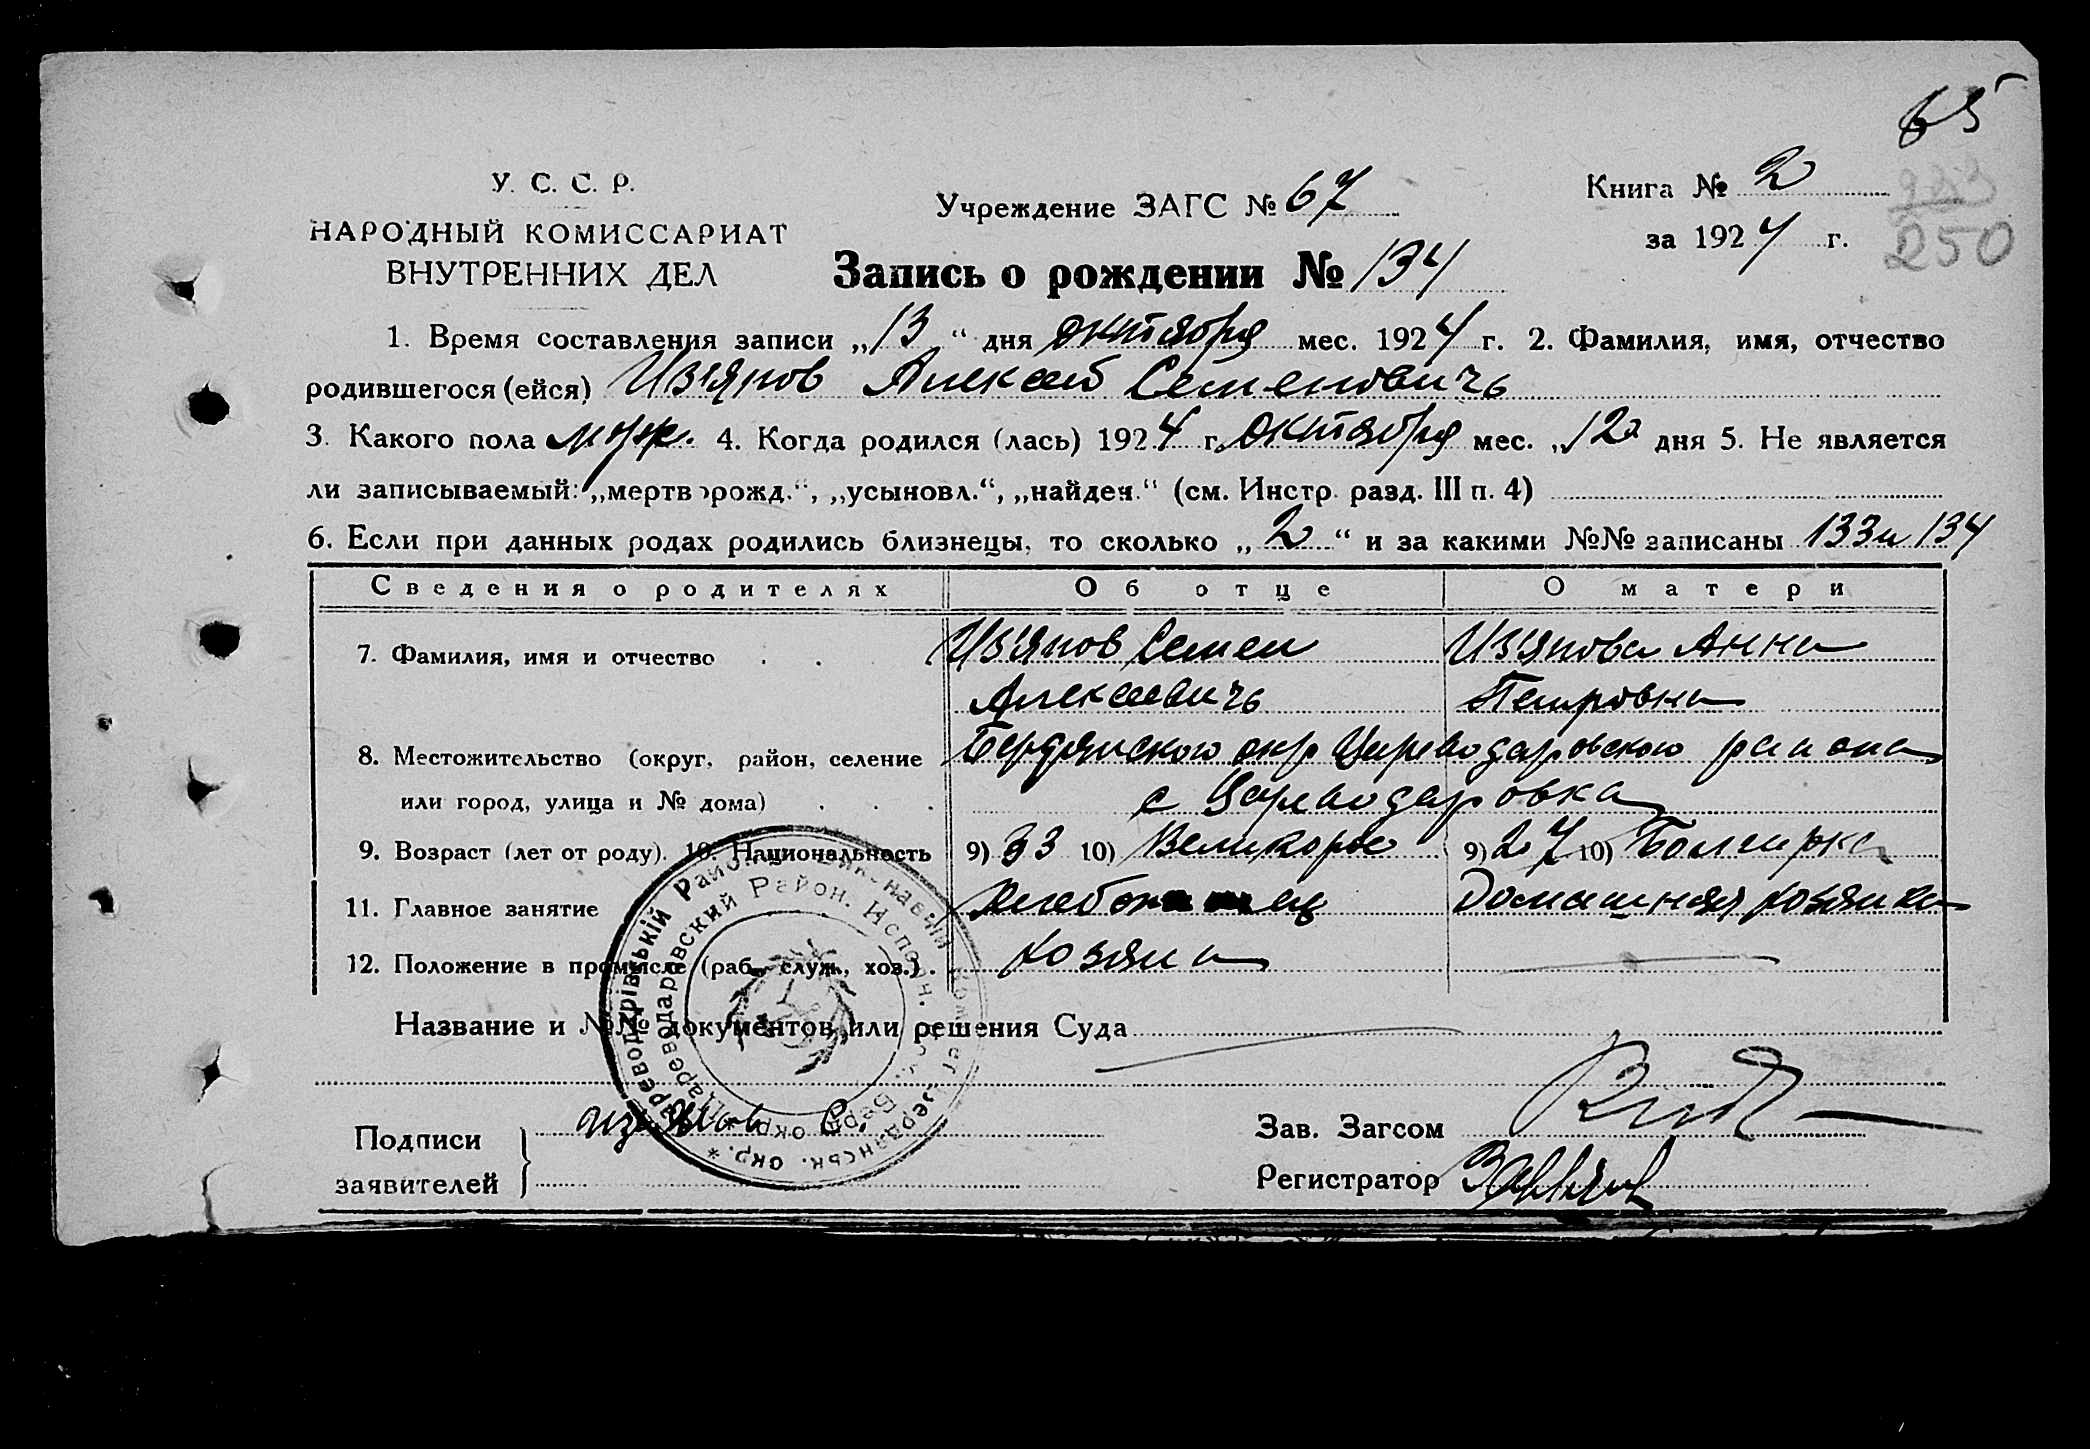 65
У. С. С. Р.
НАРОДНЫЙ КОМИССАРИАТ
ВНУТРЕННИХ ДЕЛ
Учреждение ЗАГС № 67
Книга № 2
за 1924 г.
250
Запись о рождении № 134
1. Время составления записи „13“ дня октября мес. 1924 г. 2. Фамилия, имя, отчество
родившегося (ейся) Из'япов Алексей Семеновичь
3. Какого пола муж. 4. Когда родился (лась) 1924 г. октября мес. „12 дня 5. Не является
ли записываемый: „мертворожд.“, „усыновл.“, „найден.“ (см. Инстр. разд. III п. 4)
6. Если при данных родах родились близнецы, то сколько „2“ и за какими №№ записаны 133 и 134
Сведения о родителях Об отце О матери
7. Фамилия, имя и отчество Из'япов Семен Из'япова Анна
Алексеевичь Петровна
8. Местожительство (округ, район, селение Бердянского окр Цареводаровского района
или город, улица и № дома) с Цареводаровка
9. Возраст (лет от роду). 10. Национальность 9) 33 10) Великорос 9) 27 10) Болгарка
11. Главное занятие Домашняя хозяйка
12. Положение в промысле (раб., служ., хоз.) хозяин
Название и №№ документов или решения Суда
Подписи
заявителей
Зав. Загсом
Регистратор
Цареводарівський Район. Виконавчий Комітет Бердянськ. окр.
Цареводаровский Район. Исполн. Ком. Берд. окр.